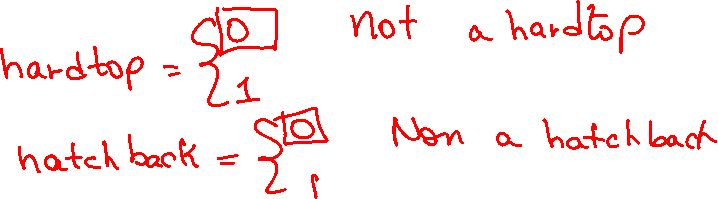 hardtop = { 0 not a hardtop
1
hatchback = { 0 Non a hatchback
1